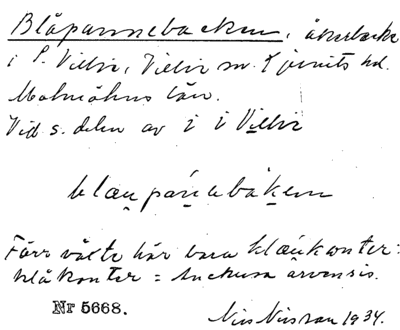 Blåpannebacken, åkerbacke
i S. Villie, Villie sn. Ljunits hd.
Malmöhus län.
Vid s. delen av i i Villie
blæu̯pánabákem
Förr växte här bara klæu̯konter:
blåkonter = Anchusa arvensis.
Nr 5668.
Nils Nilsson 1934.